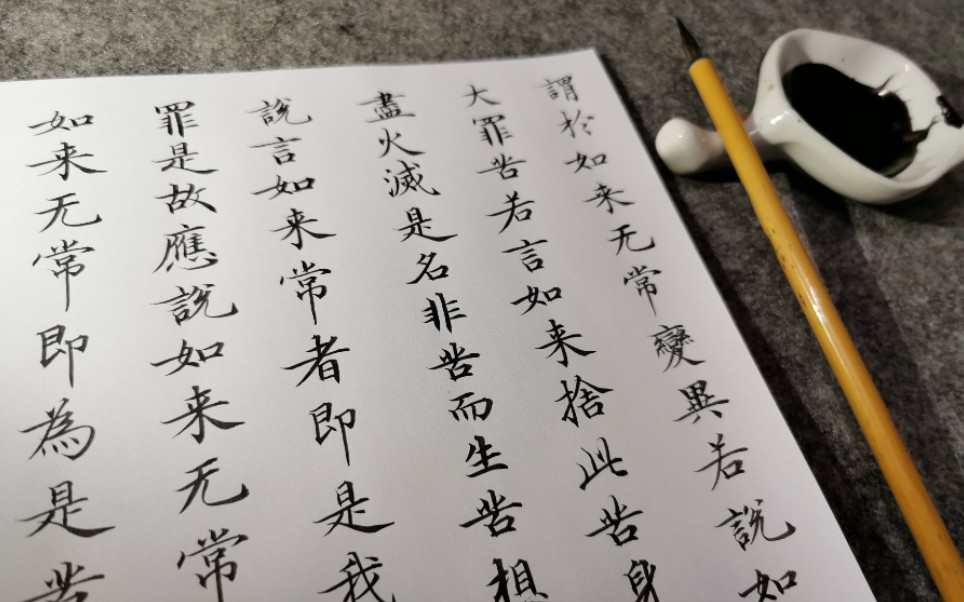 謂於如来无常變異若說如
大罪苦若言如来捨此苦身
盡火滅是名非苦而生苦想
說言如来常者即是我
罪是故應說如来无常
如来无常即為是苦